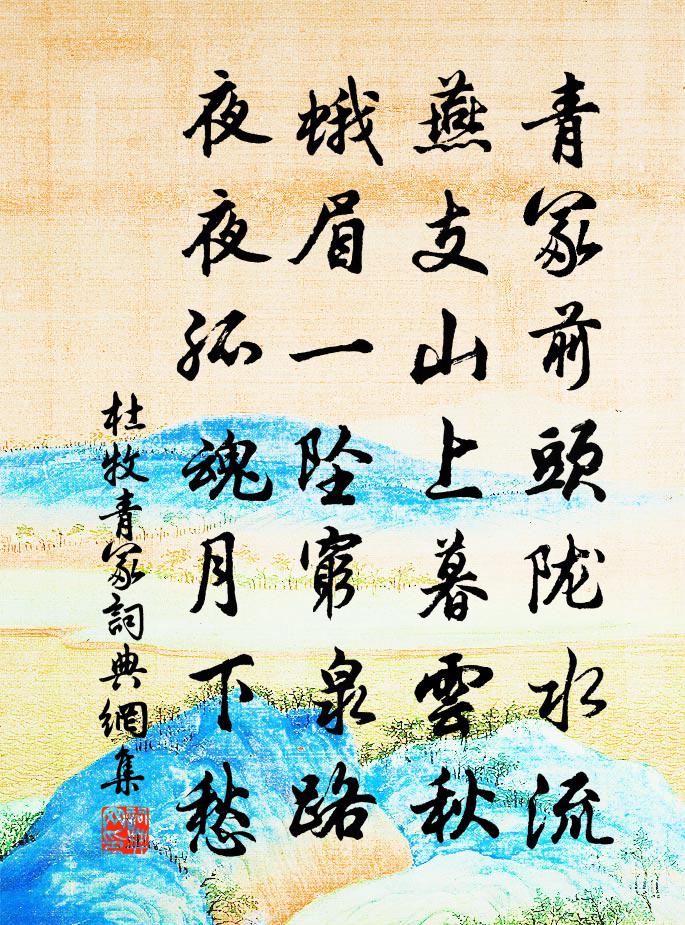 青冢前頭陇水流
燕支山上暮雲秋
蛾眉一坠窮泉路
夜夜孤魂月下愁
杜牧青冢詞典網集